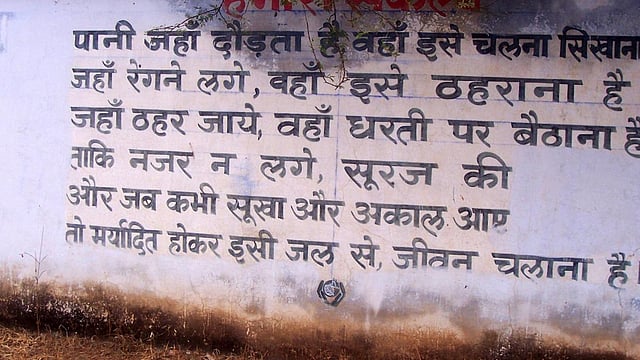 हमारा संकल्प
पानी जहाँ दौड़ता है वहाँ इसे चलना सिखाना
जहाँ रेंगने लगे, वहाँ इसे ठहराना है
जहाँ ठहर जाये, वहाँ धरती पर बैठाना है
ताकि नजर न लगे, सूरज की
और जब कभी सूखा और अकाल आए
तो मर्यादित होकर इसी जल से, जीवन चलाना है